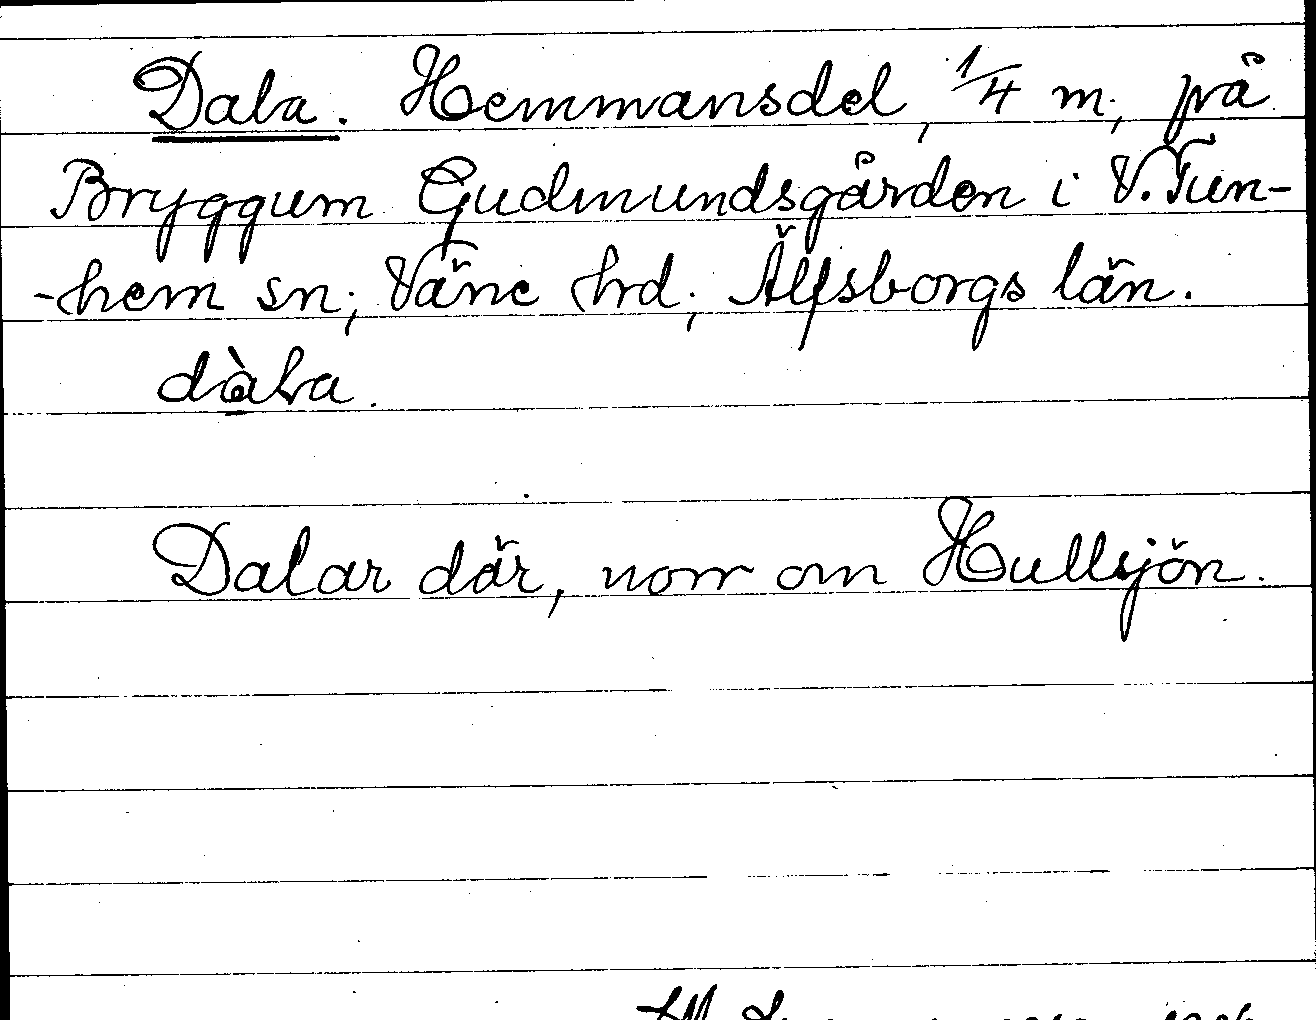 Dala. Hemmansdel, 1/4 m, på
Bryggum Gudmundsgården i V. Tun-
-hem sn; Väne hrd; Älfsborgs län.
dàla.
Dalar där, norr om Hullsjön.